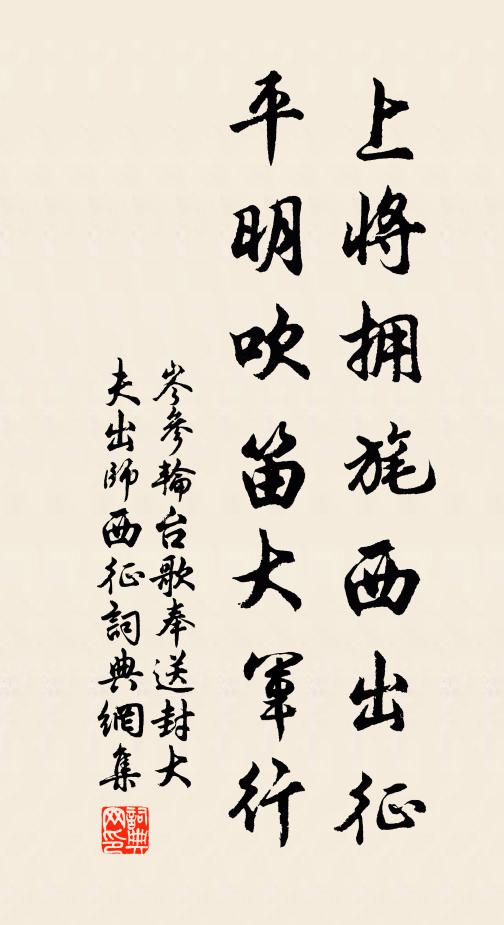 上將拥旄西出征
平明吹笛大軍行
岑參輪台歌奉送封大
夫出師西征詞典網集
詞典
网印